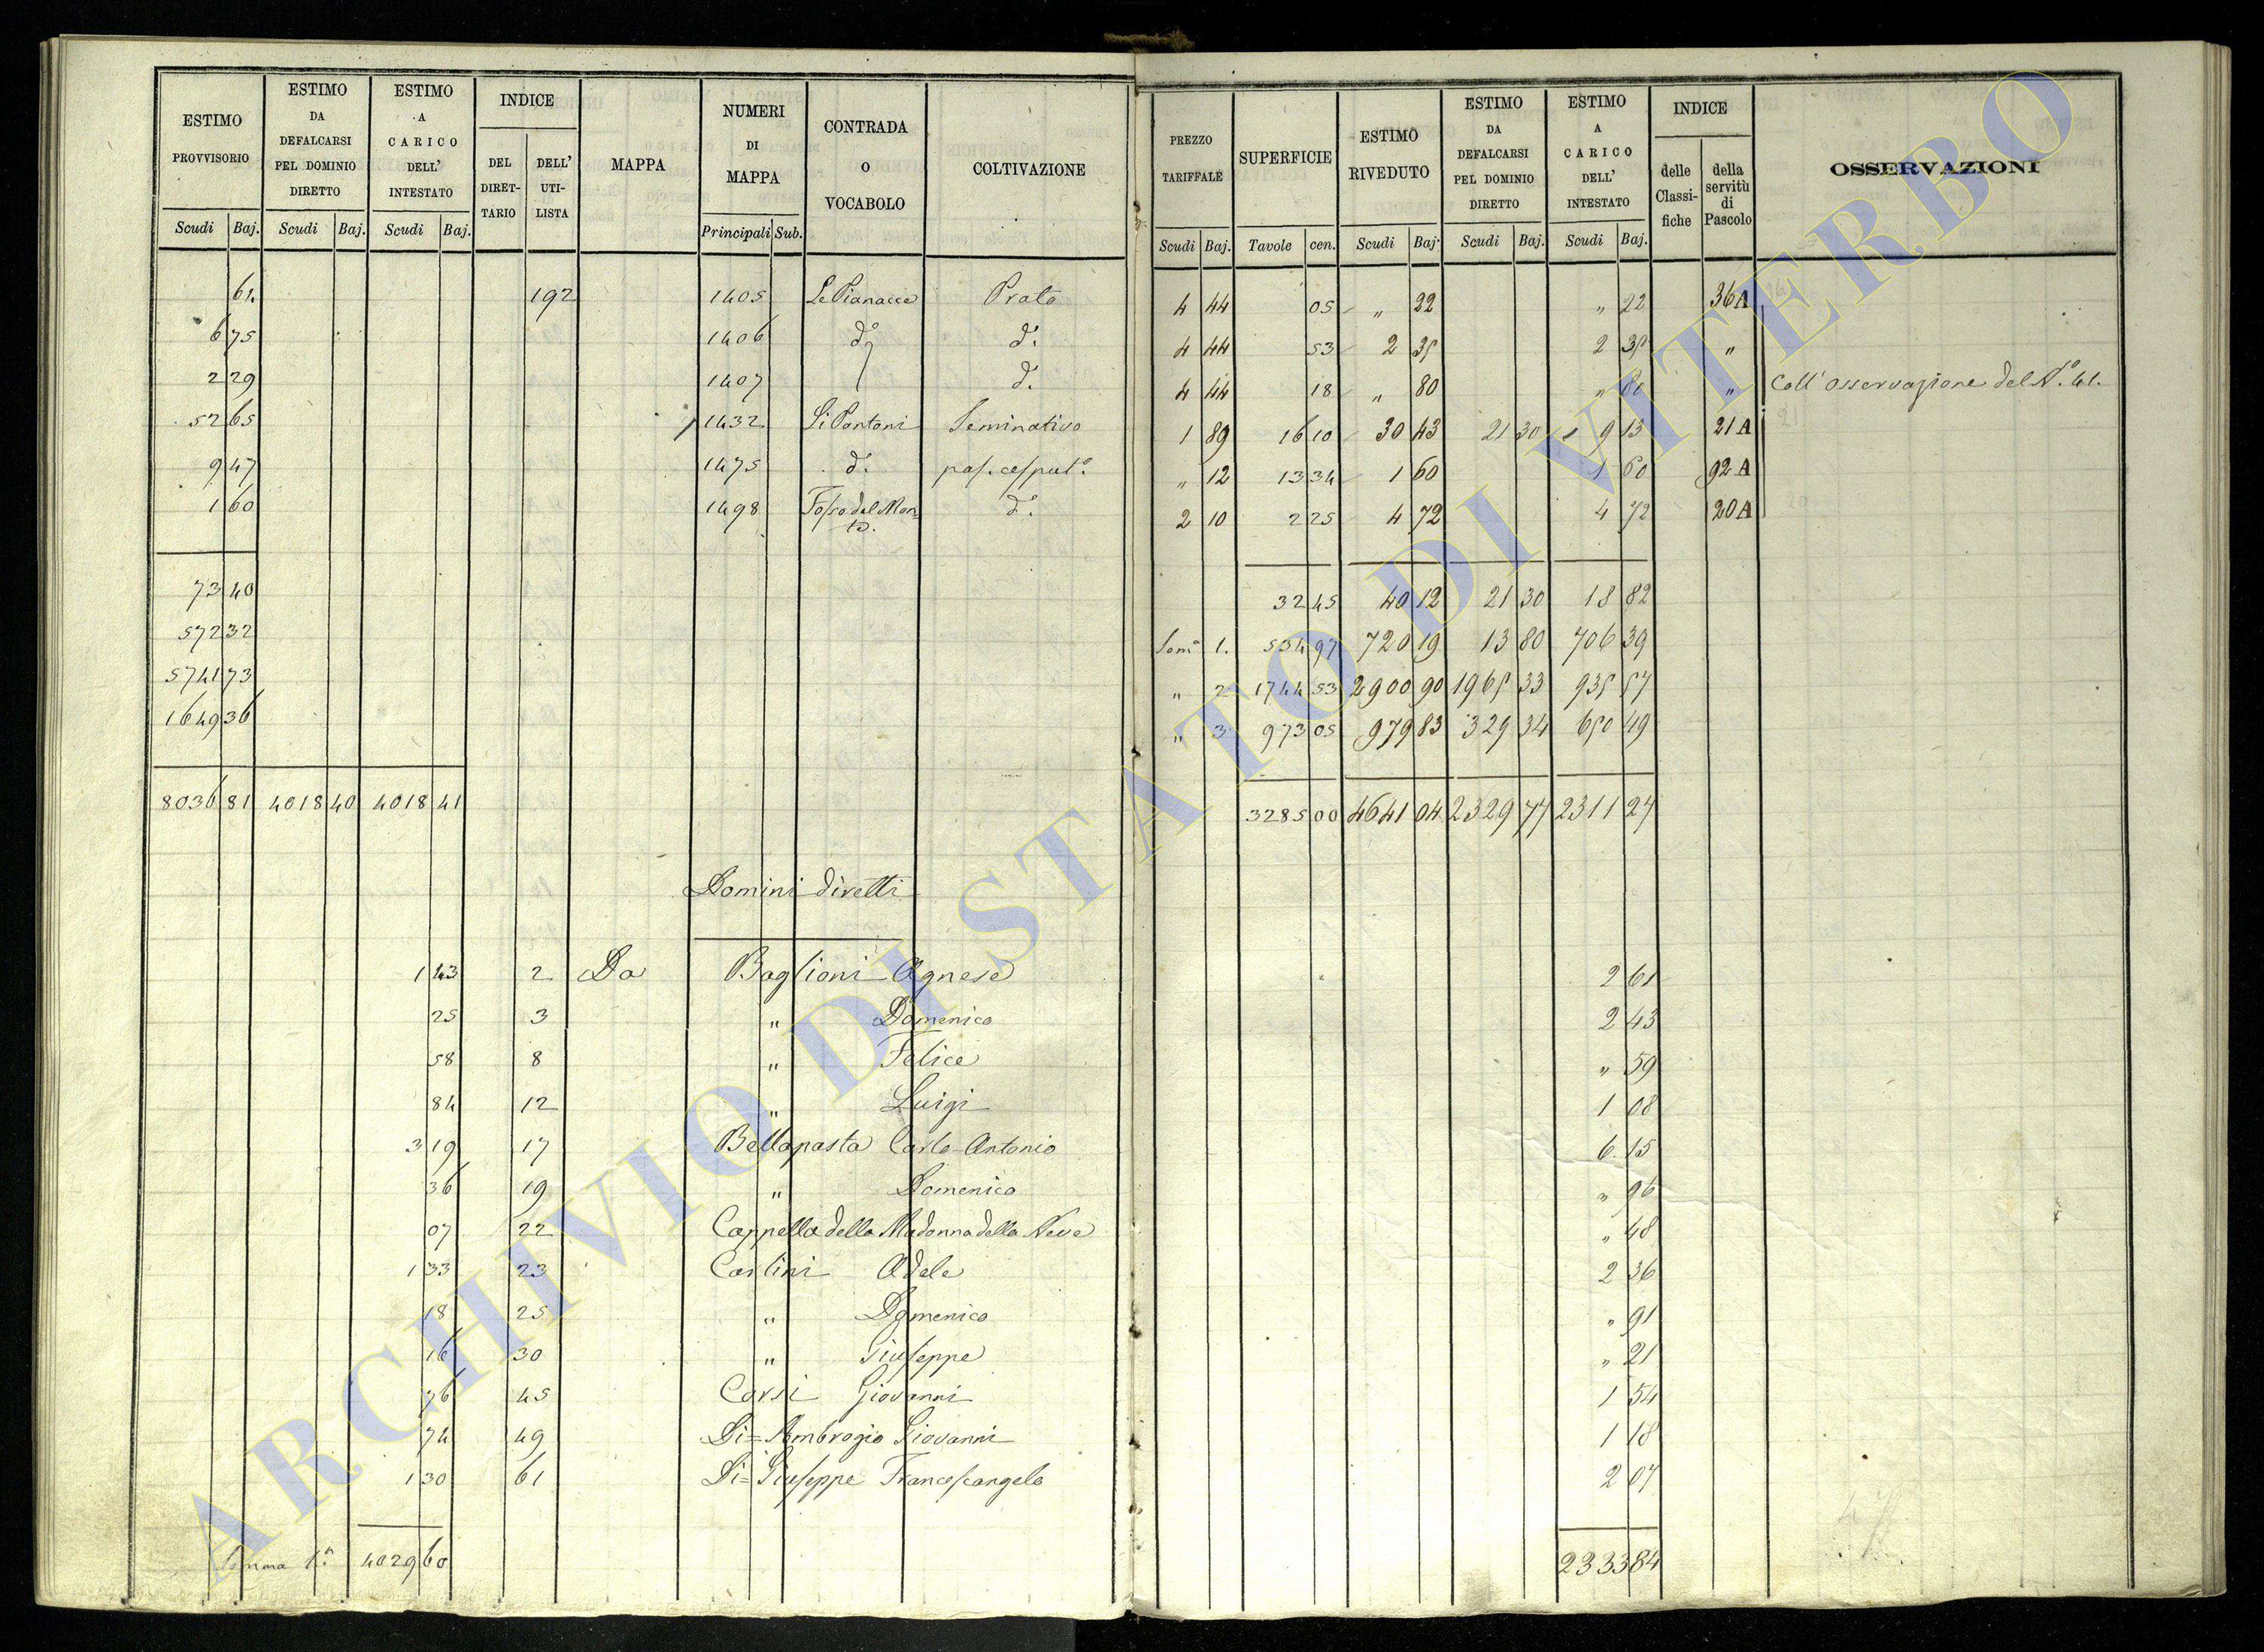 ESTIMO PROVVISORIO Scudi Baj.
ESTIMO DA DEFALCARSI PEL DOMINIO DIRETTO Scudi Baj.
ESTIMO A CARICO DELL' INTESTATO Scudi Baj.
INDICE DEL DIRET- TARIO DELL' UTI- LISTA
MAPPA
NUMERI DI MAPPA Principali Sub.
CONTRADA O VOCABOLO
COLTIVAZIONE
61 192 1405 Le Pianacce Prato
6 75 1406 do do
2 29 1407 do
52 65 1432 Li Pantani Seminativo
9 47 1475 do pas. cesput.o
1 60 1498 Fosso del Mon= to. do
73 40
572 32
5741 73
1649 36
8036 81 4018 40 4018 41
Domini diretti
1 43 2 Da Baglioni Agnese
25 3 " Domenico
58 8 " Felice
84 12 " Luigi
3 19 17 Bellapasta Carlo-Antonio
36 19 " Domenico
07 22 Cappella della Madonna della Neve
1 33 23 Carlini Adele
18 25 " Domenico
16 30 " Giuseppe
76 45 Corsi Giovanni
74 49 Di=Ambrogio Giovanni
1 30 61 Di=Giuseppe Francescangelo
Somma 1.a 4029 60
PREZZO TARIFFALE Scudi Baj.
SUPERFICIE Tavole cen.
ESTIMO RIVEDUTO Scudi Baj.
ESTIMO DA DEFALCARSI PEL DOMINIO DIRETTO Scudi Baj.
ESTIMO A CARICO DELL' INTESTATO Scudi Baj.
INDICE delle Classi- fiche della servitù di Pascolo
OSSERVAZIONI
4 44 05 " 22 " 22 36 A
4 44 53 2 35 2 35 "
4 44 18 " 80 " 80 " Coll' osservazione del N.o 41.
1 89 16 10 30 43 21 30 9 13 21 A
" 12 13 34 1 60 1 60 92 A
2 10 2 25 4 72 4 72 20 A
32 45 40 12 21 30 18 82
Som.a 1. 534 97 720 19 13 80 706 39
" 2 1744 53 2900 90 1965 33 935 57
" 3 973 05 979 83 329 34 650 49
3285 00 4641 04 2329 77 2311 27
2 61
2 43
" 59
1 08
6 15
" 96
" 48
2 36
" 91
" 21
1 54
1 18
2 07
2333 84
ARCHIVIO DI STATO DI VITERBO